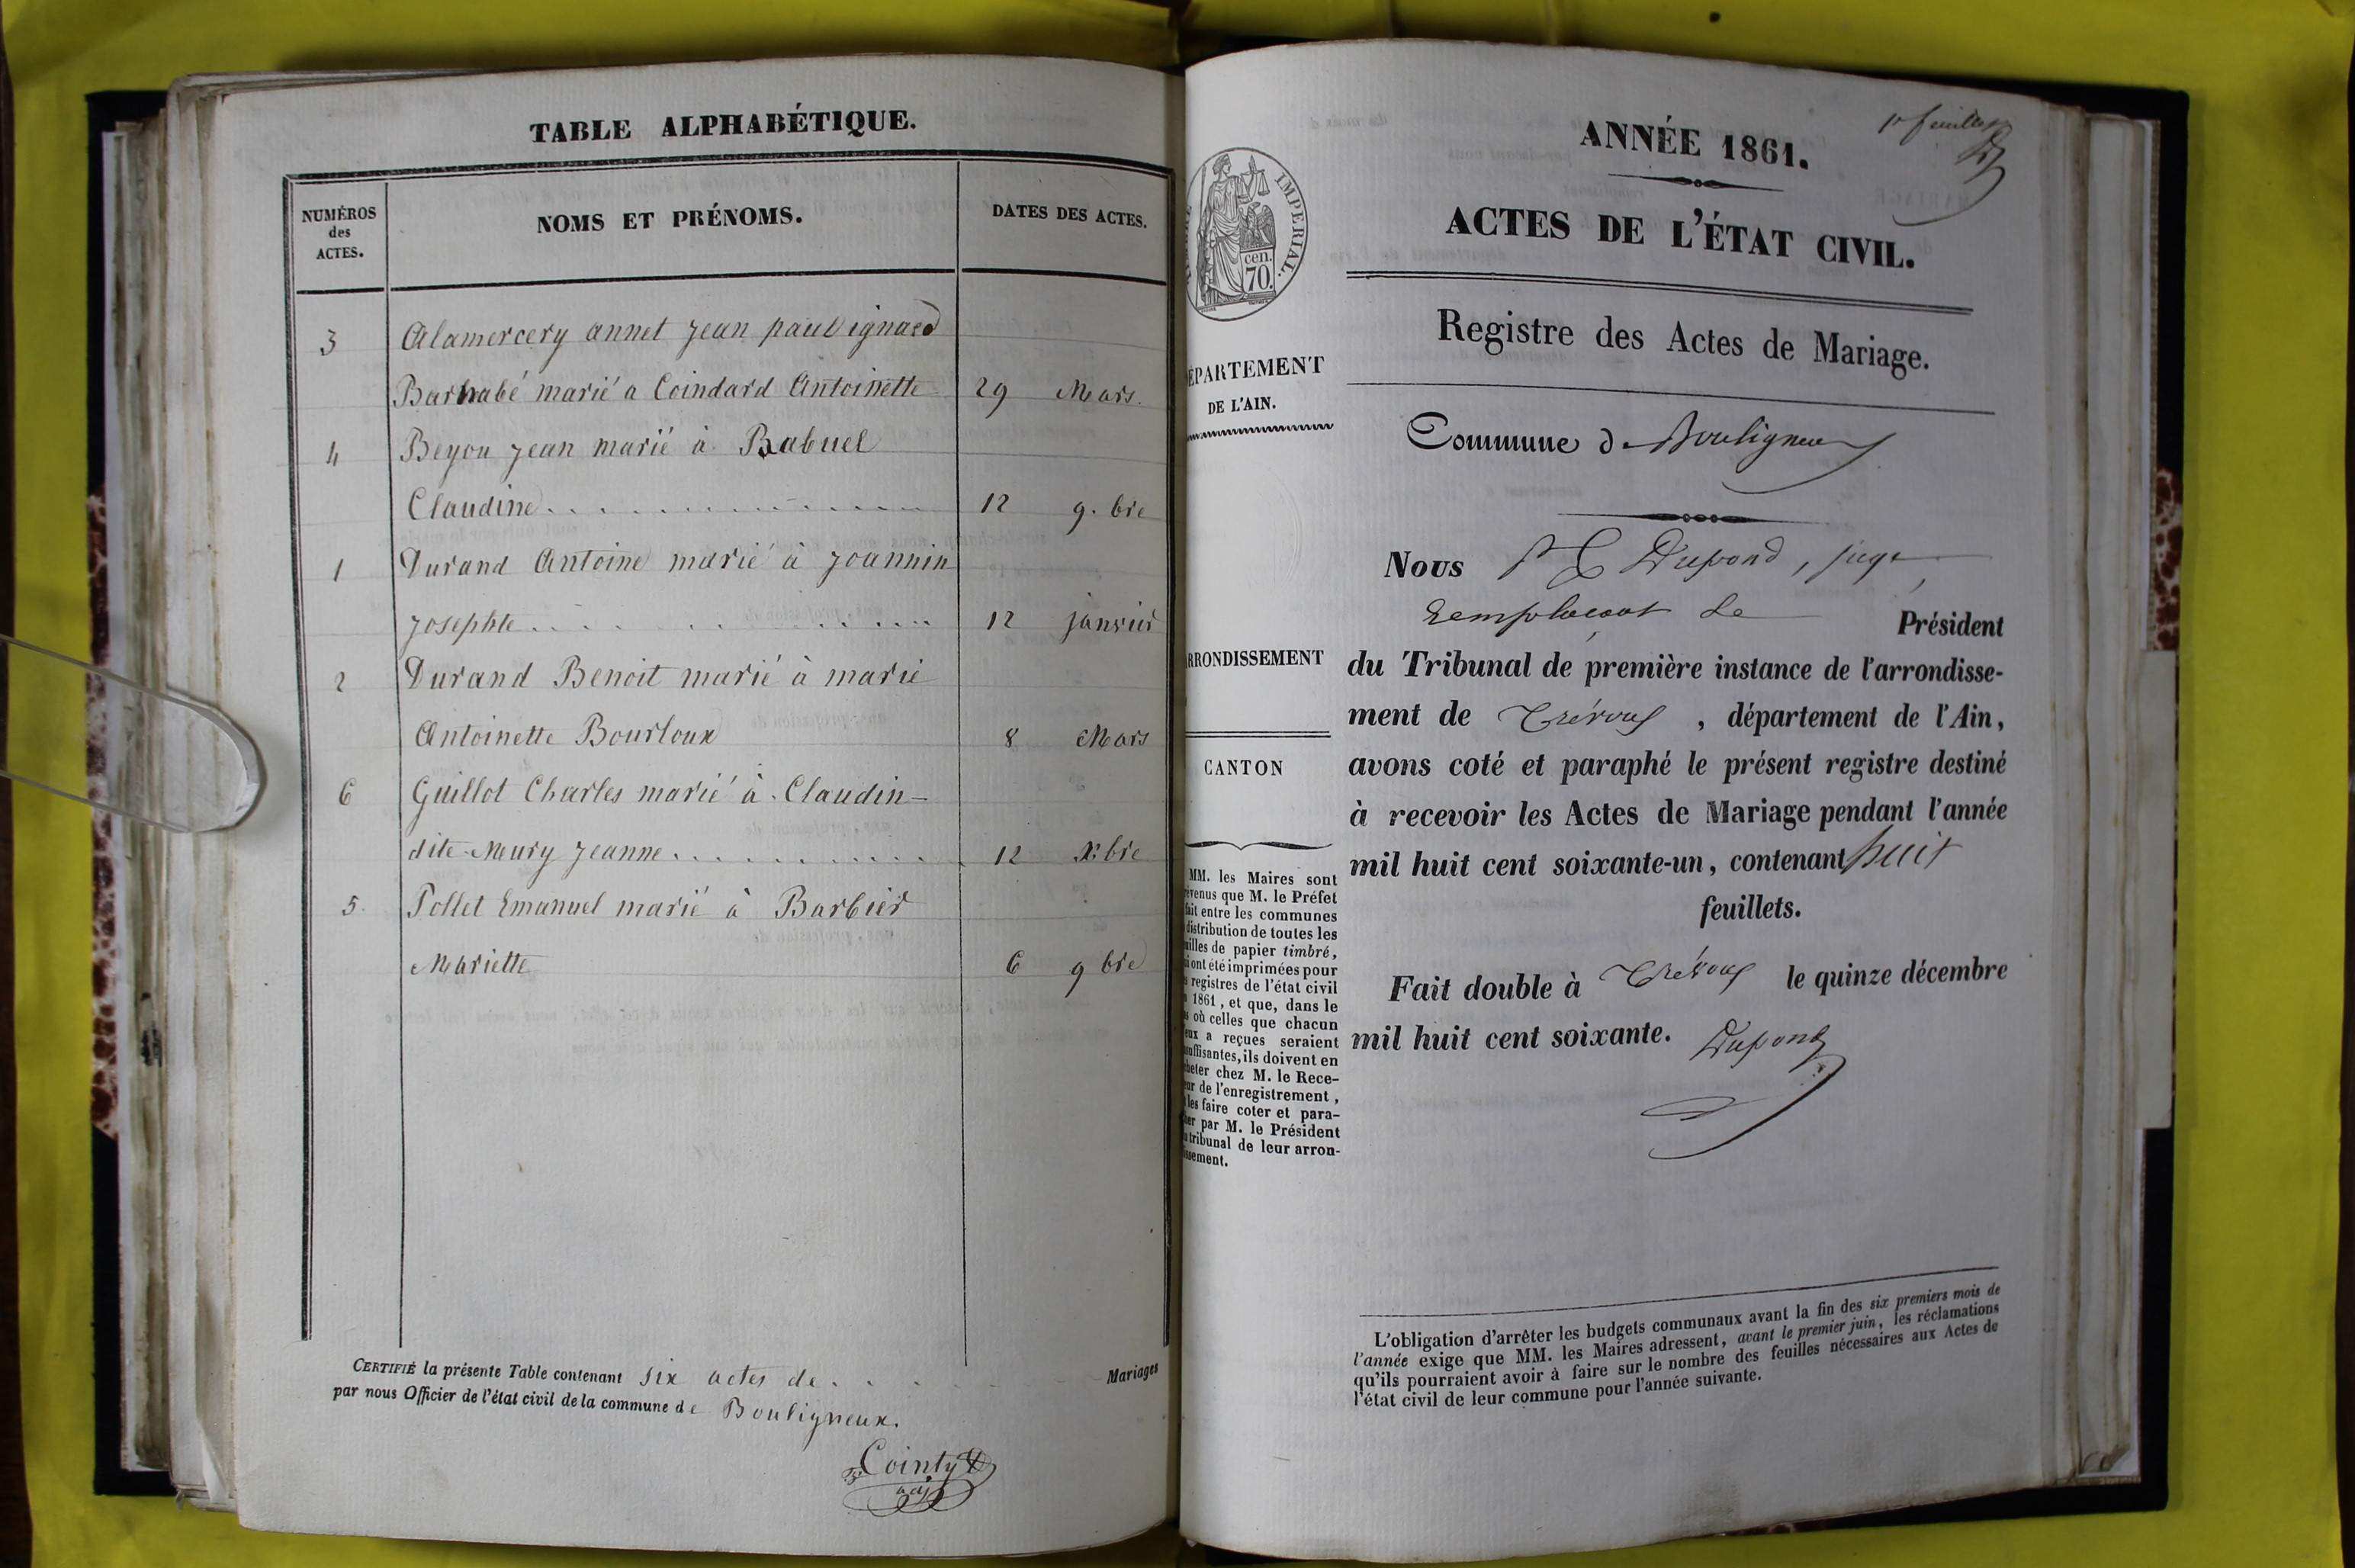 TABLE ALPHABÉTIQUE.
NUMÉROS
des
ACTES.
NOMS ET PRÉNOMS.
DATES DES ACTES.
3 Alamercery annet jean paul ignace
Barnabé marié a Coindard Antoinette 29 Mars.
4 Beyou jean marié à Babuel
Claudine 12 9.bre
1 Durand Antoine marié à joannin
josephte 12 janvier
2 Durand Benoit marié à marie
Antoinette Bourloux 8 Mars
6 Guillot Charles marié à Claudin-
dite Meury jeanne 12 Xbre
5 Pollet Emanuel marié à Barbier
Mariette 6 9bre
CERTIFIÉ la présente Table contenant six actes de Mariages
par nous Officier de l'état civil de la commune de Bouligneux.
Cointy
adj
1r feuillet
ANNÉE 1861.
ACTES DE L'ÉTAT CIVIL.
Registre des Actes de Mariage.
Commune de Bouligneux
Nous Dupond, juge
remplacant le Président
du Tribunal de première instance de l'arrondisse-
ment de Trévoux, département de l'Ain,
avons coté et paraphé le présent registre destiné
à recevoir les Actes de Mariage pendant l'année
mil huit cent soixante-un, contenant huit
feuillets.
Fait double à Trévoux le quinze décembre
mil huit cent soixante. Dupond
L'obligation d'arrêter les budgets communaux avant la fin des six premiers mois de
l'année exige que MM. les Maires adressent, avant le premier juin, les réclamations
qu'ils pourraient avoir à faire sur le nombre des feuilles nécessaires aux Actes de
l'état civil de leur commune pour l'année suivante.
IMPERIAL.
cen.
70.
ÉPARTEMENT
DE L'AIN.
RRONDISSEMENT
CANTON
MM. les Maires sont
évenus que M. le Préfet
fait entre les communes
distribution de toutes les
uilles de papier timbré,
i ont été imprimées pour
s registres de l'état civil
1861, et que, dans le
s où celles que chacun
eux a reçues seraient
suffisantes, ils doivent en
heter chez M. le Rece-
ur de l'enregistrement,
les faire coter et para-
her par M. le Président
tribunal de leur arron-
ssement.